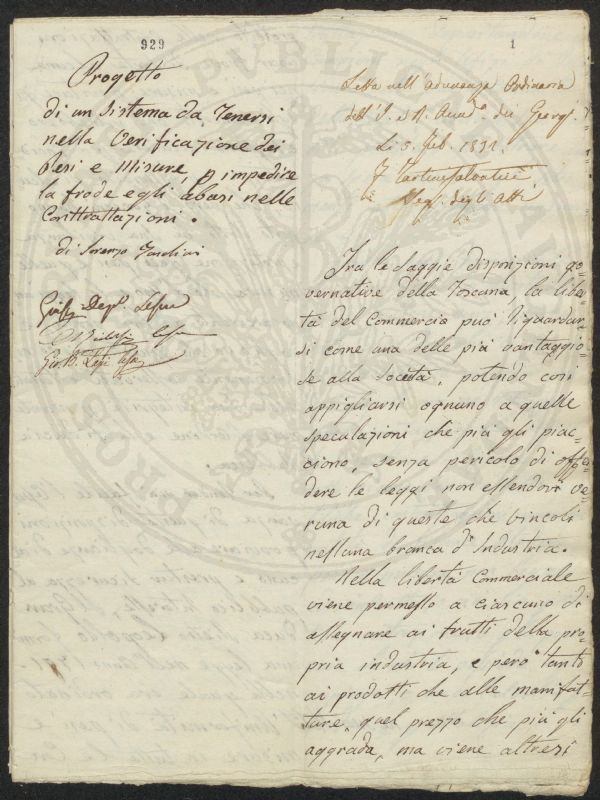 929
Progetto
di un Sistema da Tenersi
nella Verificazione dei
Pesi e Misure, p impedire
la frode e gli abusi nelle
Conttrattazioni.
di Lorenzo
1
Letta nell'adunanza Ordinaria
dell'I. e R. Accad.a dei Georgf.
Li 5. Feb. 1832.
Seg. degli Atti
Fra le saggie disposizioni go-
vernative della Toscana, la liber-
tà del Commercio può riguardar-
si come una delle più vantaggio-
se alla società, potendo così
appigliarsi ognuno a quelle
speculazioni che più gli piac-
ciono, senza pericolo di offen-
dere le leggi non essendovi ve-
runa di queste che vincoli
nessuna branca d'Industria.
Nella libertà Commerciale
viene permesso a ciascuno di
assegnare ai frutti della pro-
pria industria, e però tanto
ai prodotti che alle manifat-
ture, quel prezzo che più gli
aggrada, ma viene altresì